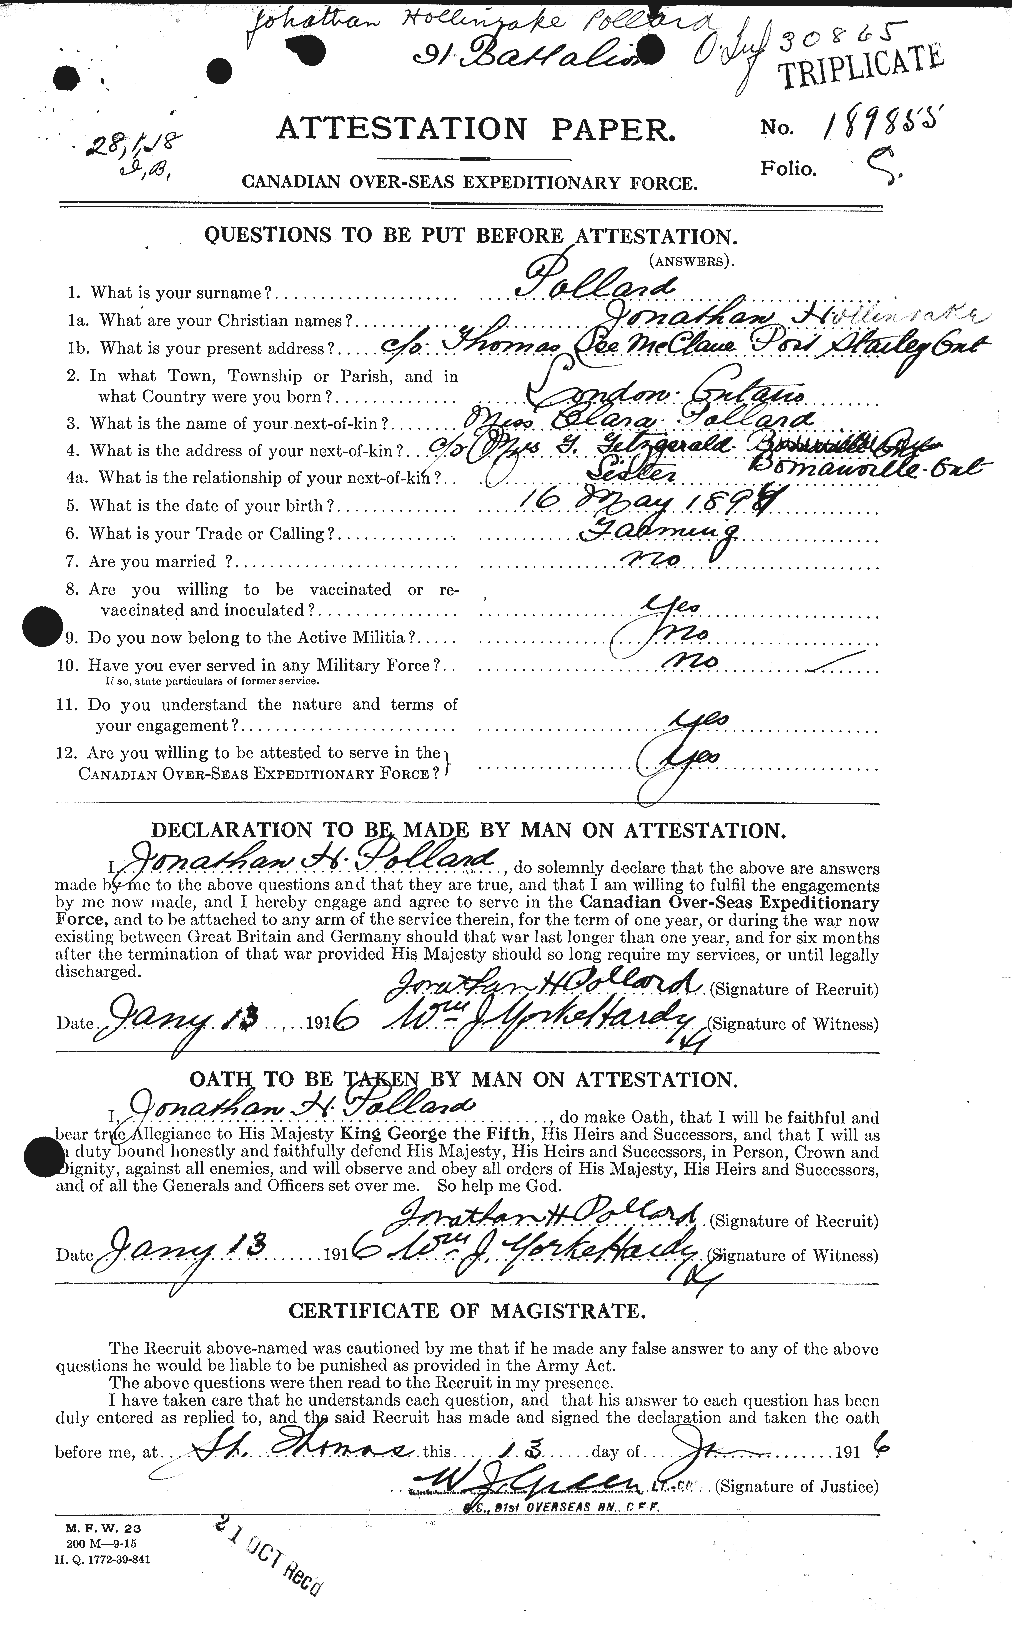 Jonathan Hollinrake Pollard
91 Battalion
30865
TRIPLICATE
ATTESTATION PAPER.
No. 189855
Folio. S.
28/1/18
CANADIAN OVER-SEAS EXPEDITIONARY FORCE.
QUESTIONS TO BE PUT BEFORE ATTESTATION.
(ANSWERS).
1. What is your surname? Pollard
1a. What are your Christian names? Jonathan Hollinrake
1b. What is your present address? c/o Thomas Lee McClane Port Stanley Ont
2. In what Town, Township or Parish, and in
what Country were you born? London Ontario
3. What is the name of your next-of-kin? Miss Clara Pollard
4. What is the address of your next-of-kin? c/o Mrs F. Fitzgerald
Bomanville Ont
4a. What is the relationship of your next-of-kin? Sister
5. What is the date of your birth? 16 May 189
6. What is your Trade or Calling? Farming
7. Are you married ? no
8. Are you willing to be vaccinated or re-
vaccinated and inoculated? Yes
9. Do you now belong to the Active Militia? no
10. Have you ever served in any Military Force? no
If so, state particulars of former service.
11. Do you understand the nature and terms of
your engagement? Yes
12. Are you willing to be attested to serve in the
CANADIAN OVER-SEAS EXPEDITIONARY FORCE? Yes
DECLARATION TO BE MADE BY MAN ON ATTESTATION.
I, Jonathan H. Pollard, do solemnly declare that the above are answers
made by me to the above questions and that they are true, and that I am willing to fulfil the engagements
by me now made, and I hereby engage and agree to serve in the Canadian Over-Seas Expeditionary
Force, and to be attached to any arm of the service therein, for the term of one year, or during the war now
existing between Great Britain and Germany should that war last longer than one year, and for six months
after the termination of that war provided His Majesty should so long require my services, or until legally
discharged.
Jonathan H Pollard (Signature of Recruit)
Date Jany 13 1916 Wm J Yorke Hardy (Signature of Witness)
OATH TO BE TAKEN BY MAN ON ATTESTATION.
I, Jonathan H. Pollard, do make Oath, that I will be faithful and
bear true Allegiance to His Majesty King George the Fifth, His Heirs and Successors, and that I will as
duty bound honestly and faithfully defend His Majesty, His Heirs and Successors, in Person, Crown and
Dignity, against all enemies, and will observe and obey all orders of His Majesty, His Heirs and Successors,
and of all the Generals and Officers set over me. So help me God.
Jonathan H Pollard (Signature of Recruit)
Date Jany 13 1916 Wm J. Yorke Hardy (Signature of Witness)
CERTIFICATE OF MAGISTRATE.
The Recruit above-named was cautioned by me that if he made any false answer to any of the above
questions he would be liable to be punished as provided in the Army Act.
The above questions were then read to the Recruit in my presence.
I have taken care that he understands each question, and that his answer to each question has been
duly entered as replied to, and the said Recruit has made and signed the declaration and taken the oath
before me, at St. Thomas this 13 day of Jan 1916
W J Green LT.-COL. (Signature of Justice)
O.C., 91st OVERSEAS BN., C.E.F.
M. F. W. 23
200 M—9-15
H. Q. 1772-39-841
21 OCT Recd